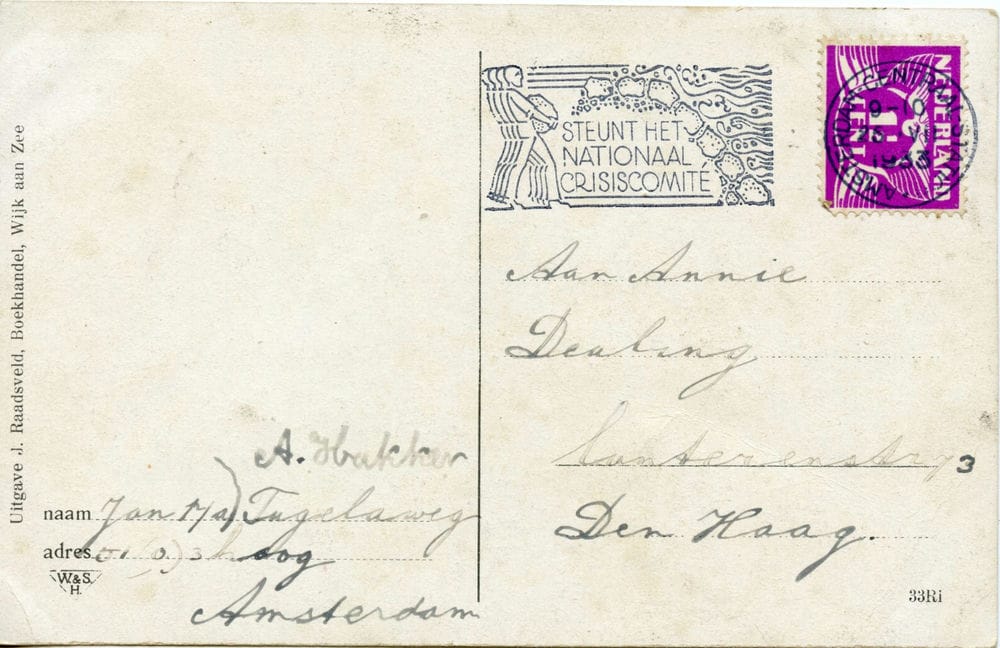 Uitgave J. Raadsveld, Boekhandel, Wijk aan Zee
STEUNT HET
NATIONAAL
CRISISCOMITÉ
NEDERLAND
AMSTERDAM CENTRAAL STATION
9-10
VII
1933
Aan Annie
Dealing
3
Den Haag.
A. Hakker
naam Jan Tugelaweg
adres 3 hoog
Amsterdam
W.&S.
H.
33Ri